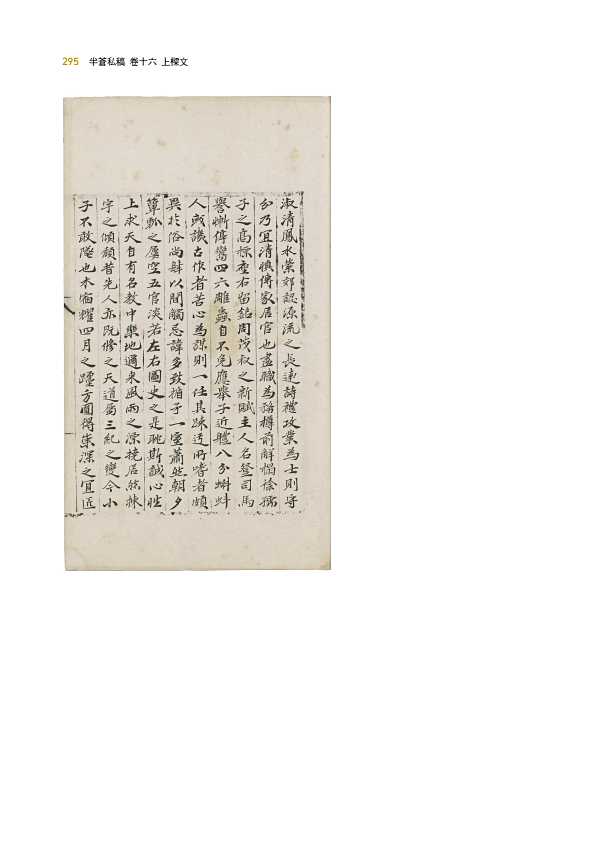 295 半蒼私稿 卷十六 上樑文
淑清鳳水紫郊認源流之長連詩禮攻業為士則守
分乃宜清愼傳家居官也盡職為務樽前解榻徐孺
子之高標座右留銘周茂叔之新賦主人名登司馬
譽慚傳鸞四六雕蟲自不免應擧子近軆八分蝌蚪
人或譏古作者苦心為謀則一任其踈迂所嗜者頗
異於俗尚肆以閒觸忌諱多致循子一室蕭然朝夕
簞瓢之屢空五官淡若左右圖史之是耽斯誠心性
上求天自有名敎中樂地適來風雨之漂搖居然棟
宇之傾頹昔先人亦旣修之天道屬三紀之變今小
子不敢隆也本宿耀四月之躔方圓得柴深之宜匠